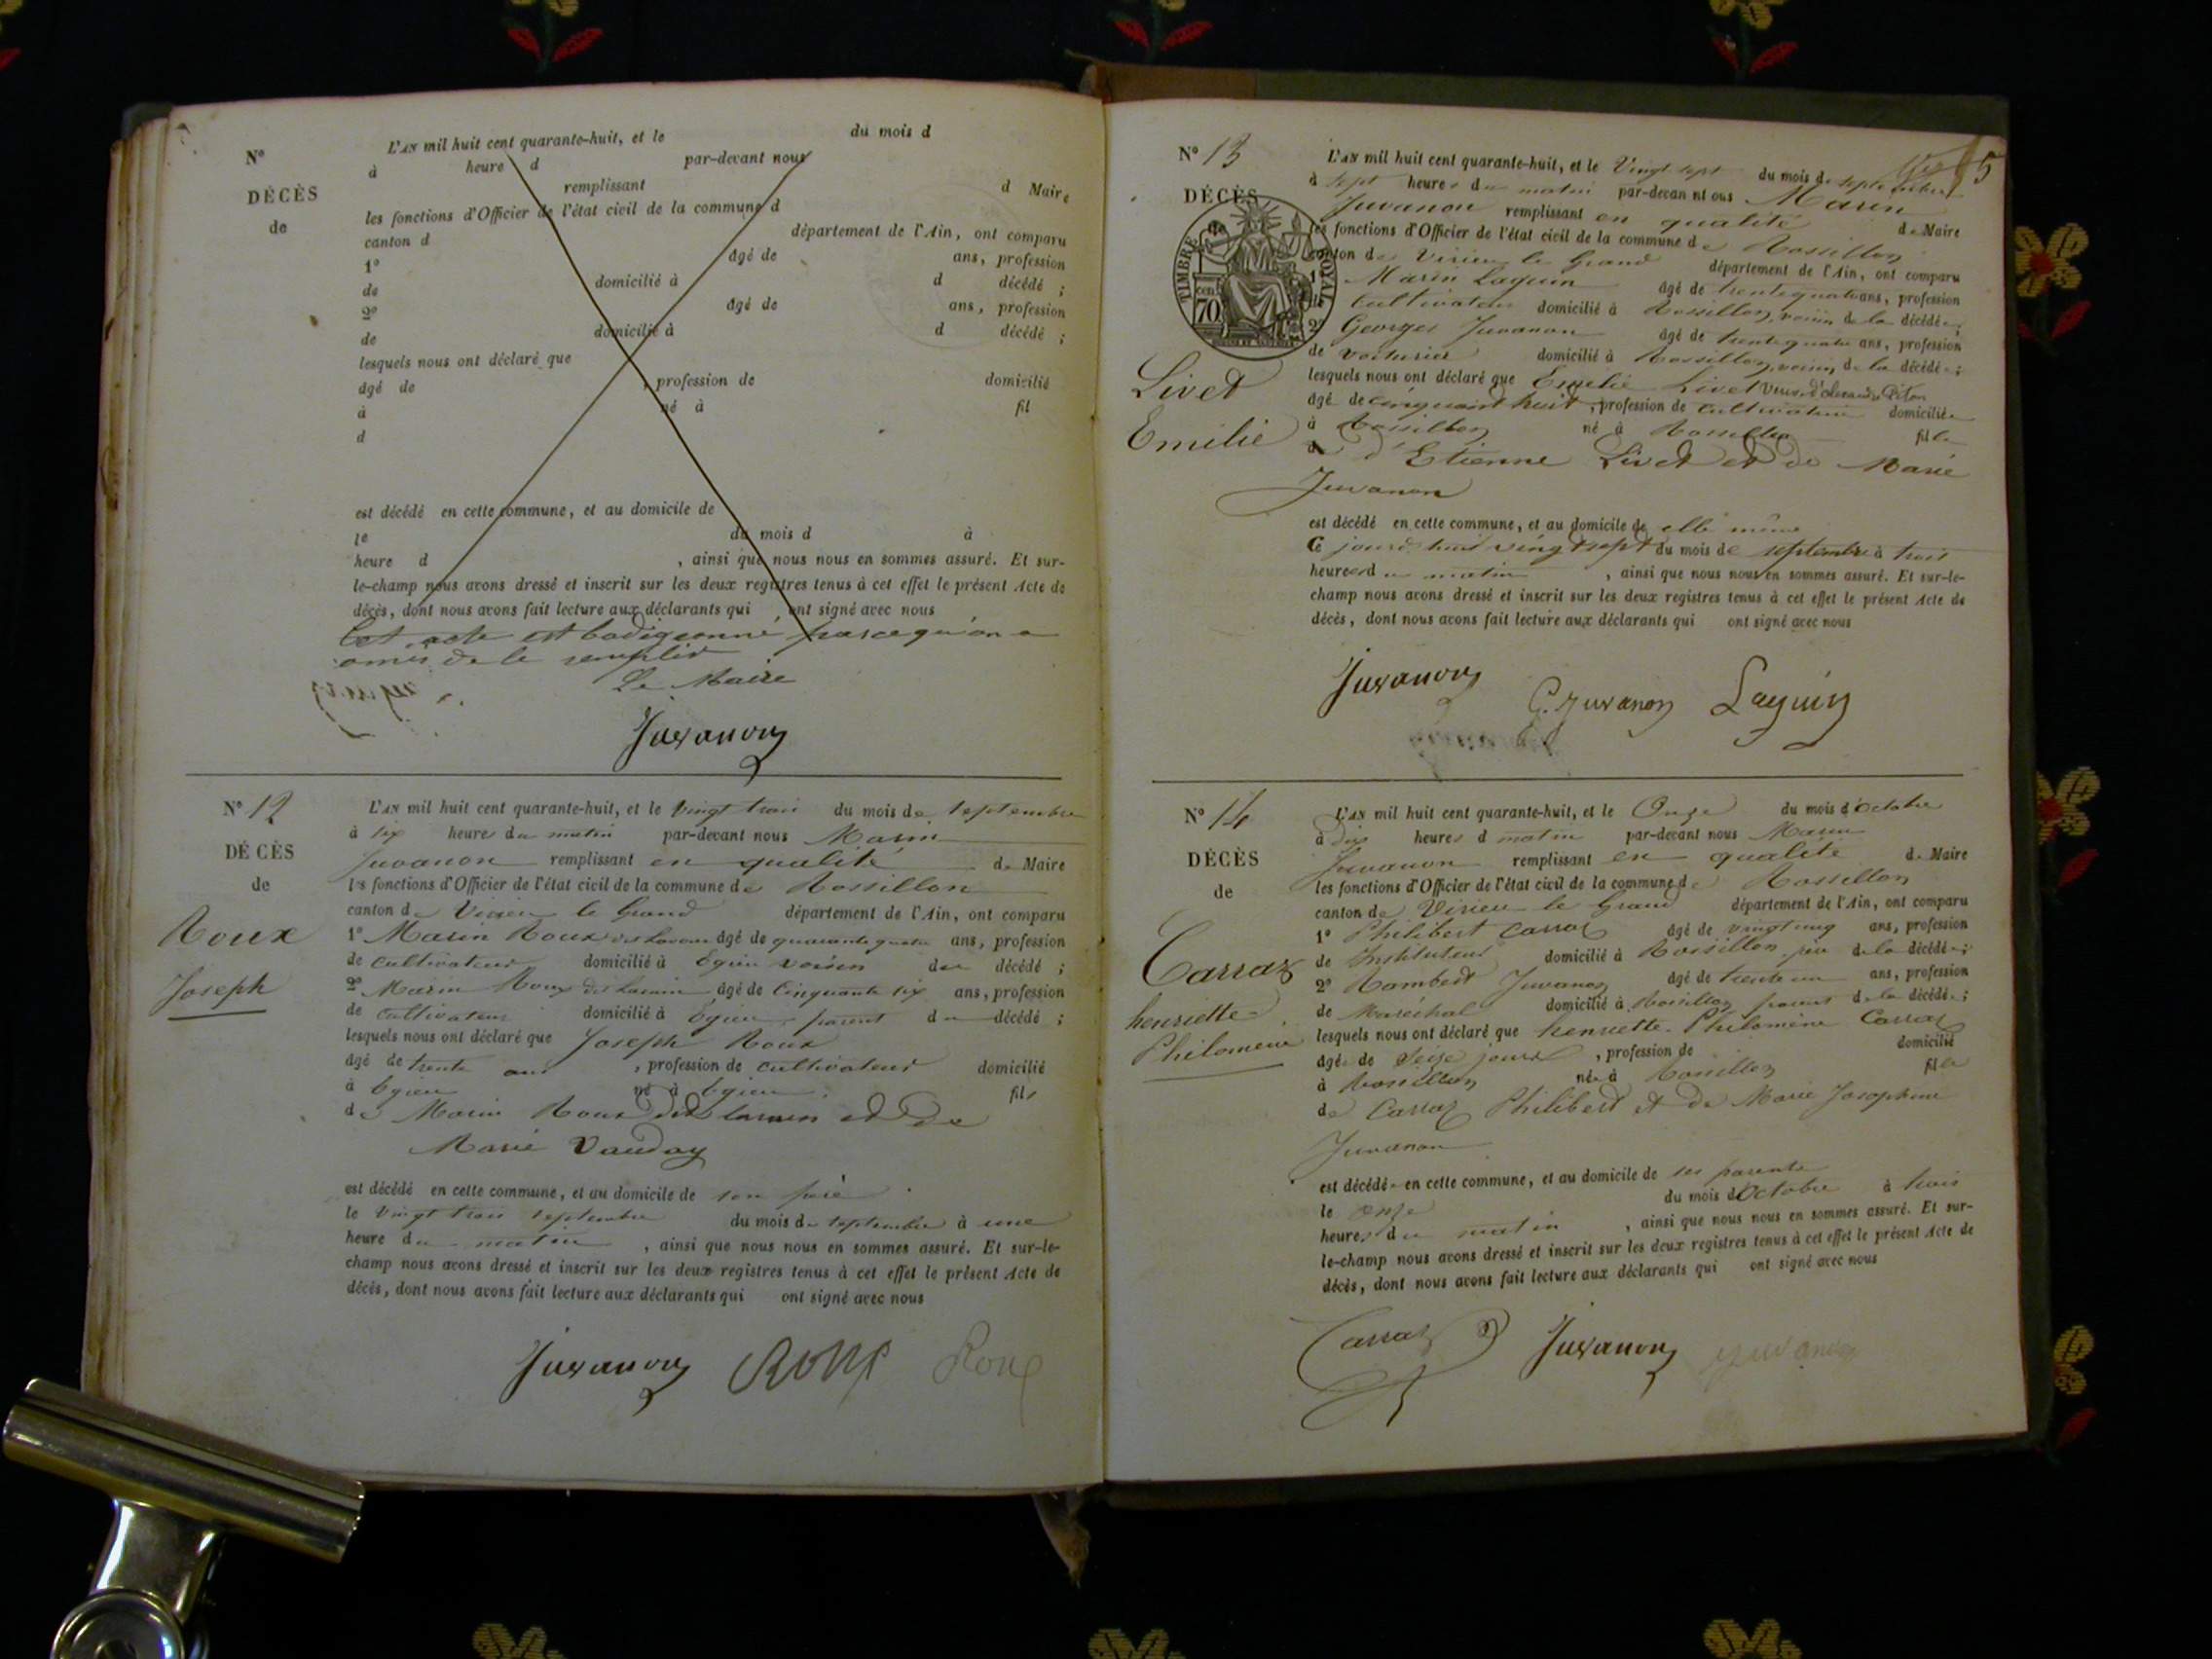 N°
DÉCÈS
de
L'AN mil huit cent quarante-huit, et le du mois d
à heure d par-devant nous
remplissant d Maire
les fonctions d'Officier de l'état civil de la commune d
canton d département de l'Ain, ont comparu
1° âgé de ans, profession
de domicilié à d décédé ;
2° âgé de ans, profession
de domicilié à d décédé ;
lesquels nous ont déclaré que
âgé de , profession de domicilié
à né à fil
d
est décédé en cette commune, et au domicile de
le du mois d à
heure d , ainsi que nous nous en sommes assuré. Et sur-
le-champ nous avons dressé et inscrit sur les deux registres tenus à cet effet le présent Acte de
décès, dont nous avons fait lecture aux déclarants qui ont signé avec nous
Cet acte est badigeonné parcequ'on a
omis de le remplir
Le Maire
Juvanon
N° 12
DÉCÈS
de
Roux
Joseph
L'AN mil huit cent quarante-huit, et le vingt trois du mois de septembre
à six heures du matin par-devant nous Marin
Juvanon remplissant en qualité de Maire
les fonctions d'Officier de l'état civil de la commune de Rossillon
canton de Virieu le Grand département de l'Ain, ont comparu
1° Marin Roux âgé de quarante quatre ans, profession
de cultivateur domicilié à Egieu voisin du décédé ;
2° Marin Roux âgé de Cinquante six ans, profession
de cultivateur domicilié à Egieu parent du décédé ;
lesquels nous ont déclaré que Joseph Roux
âgé de trente ans , profession de cultivateur domicilié
à Egieu né à Egieu fils
de Marin Roux dit et de
Marie Vauday
est décédé en cette commune, et au domicile de son père
le vingt trois septembre du mois de septembre à une
heure du matin , ainsi que nous nous en sommes assuré. Et sur-le-
champ nous avons dressé et inscrit sur les deux registres tenus à cet effet le présent Acte de
décès, dont nous avons fait lecture aux déclarants qui ont signé avec nous
Juvanon Roux Roux
N° 13
DÉCÈS
TIMBRE ROYAL
70 cen
Livet
Emilie
5
L'AN mil huit cent quarante-huit, et le Vingt sept du mois de septembre
à sept heures du matin par-devant nous Marin
Juvanon remplissant en qualité de Maire
les fonctions d'Officier de l'état civil de la commune de Rossillon
canton de Virieu le Grand département de l'Ain, ont comparu
1° Marin Laguin âgé de trente quatre ans, profession
cultivateur domicilié à Rossillon, voisin de la décédée;
2° Georges Juvanon âgé de trente quatre ans, profession
de voiturier domicilié à Rossillon, voisin de la décédée;
lesquels nous ont déclaré que Emilie Livet veuve d'alexandre
âgé de cinquant huit , profession de cultivateur domiciliée
à Rossillon né à Rossillon fille
d'Etienne Livet et de Marie
Juvanon
est décédé en cette commune, et au domicile de elle même
Ce jourd'hui vingt sept du mois de septembre à trois
heures du matin , ainsi que nous nous en sommes assuré. Et sur-le-
champ nous avons dressé et inscrit sur les deux registres tenus à cet effet le présent Acte de
décès, dont nous avons fait lecture aux déclarants qui ont signé avec nous
Juvanon G. Juvanon Laguin
N° 14
DÉCÈS
de
Carraz
henriette
Philomène
L'AN mil huit cent quarante-huit, et le Onze du mois d'Octobre
à dix heures d matin par-devant nous Marin
Juvanon remplissant en qualité de Maire
les fonctions d'Officier de l'état civil de la commune de Rossillon
canton de Virieu le Grand département de l'Ain, ont comparu
1° Philibert Carraz âgé de vingt cinq ans, profession
de Instituteur domicilié à Rossillon, père de la décédée;
2° Rambert Juvanon âgé de trente un ans, profession
de Maréchal domicilié à Rossillon parent de la décédée;
lesquels nous ont déclaré que henriette Philomène Carraz
âgée de Seize jours , profession de domicilié
à Rossillon née à Rossillon fille
de Carraz Philibert et de Marie Josephine
Juvanon
est décédée en cette commune, et au domicile de ses parents
le onze du mois d'Octobre à trois
heures du matin , ainsi que nous nous en sommes assuré. Et sur-
le-champ nous avons dressé et inscrit sur les deux registres tenus à cet effet le présent Acte de
décès, dont nous avons fait lecture aux déclarants qui ont signé avec nous
Carraz Juvanon Juvanon